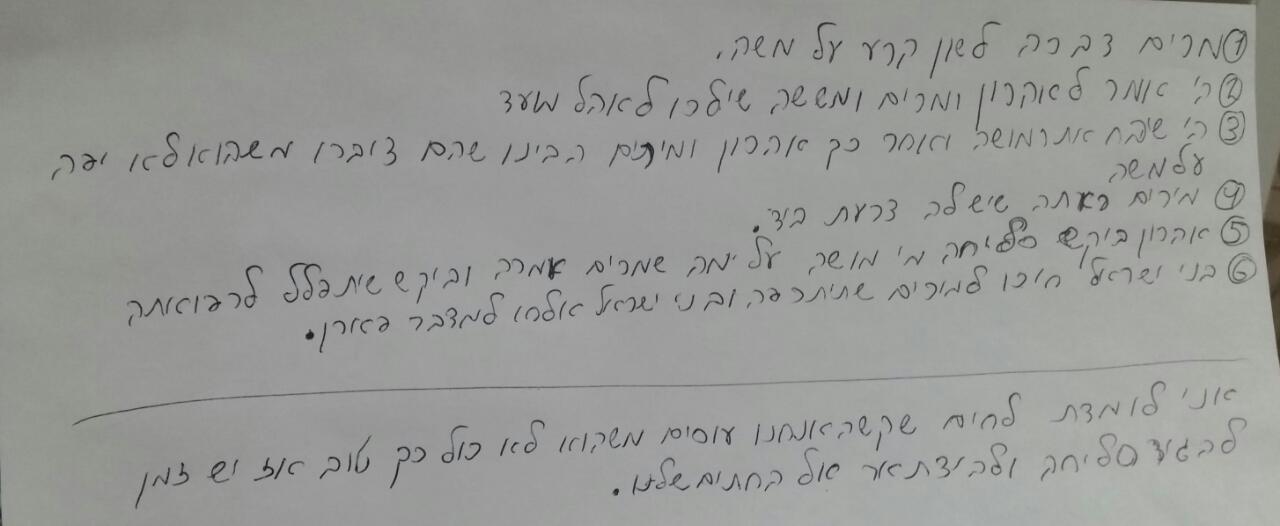 ① מרים דברה לשון קרע על משה.
② ה' אומר לאוהרון ומרים ומששה שילכו לאוהל מועד
③ ה' שיבח את מושה ואוחר כך אוהרון ומירים הבינו שהם דוברו משהוא לא יפה
על משה
④ מירים ראתה שיש לה צרעת ביד.
⑤ אהרון ביקש סליחה מי מושה על מה שמרים אמרה וביקש שיתפלל לרפואותה
⑥ בני ישראל חיכו למירים שתיתרפה ובני ישראל אולחו למדבר פארן.
אוני לומדת לחים שקשהאנחנו עוסים משהוא לא כול כך טוב אוז יש זמן
להגיד סליחה ולהיצתאר אול החתים שלנו.